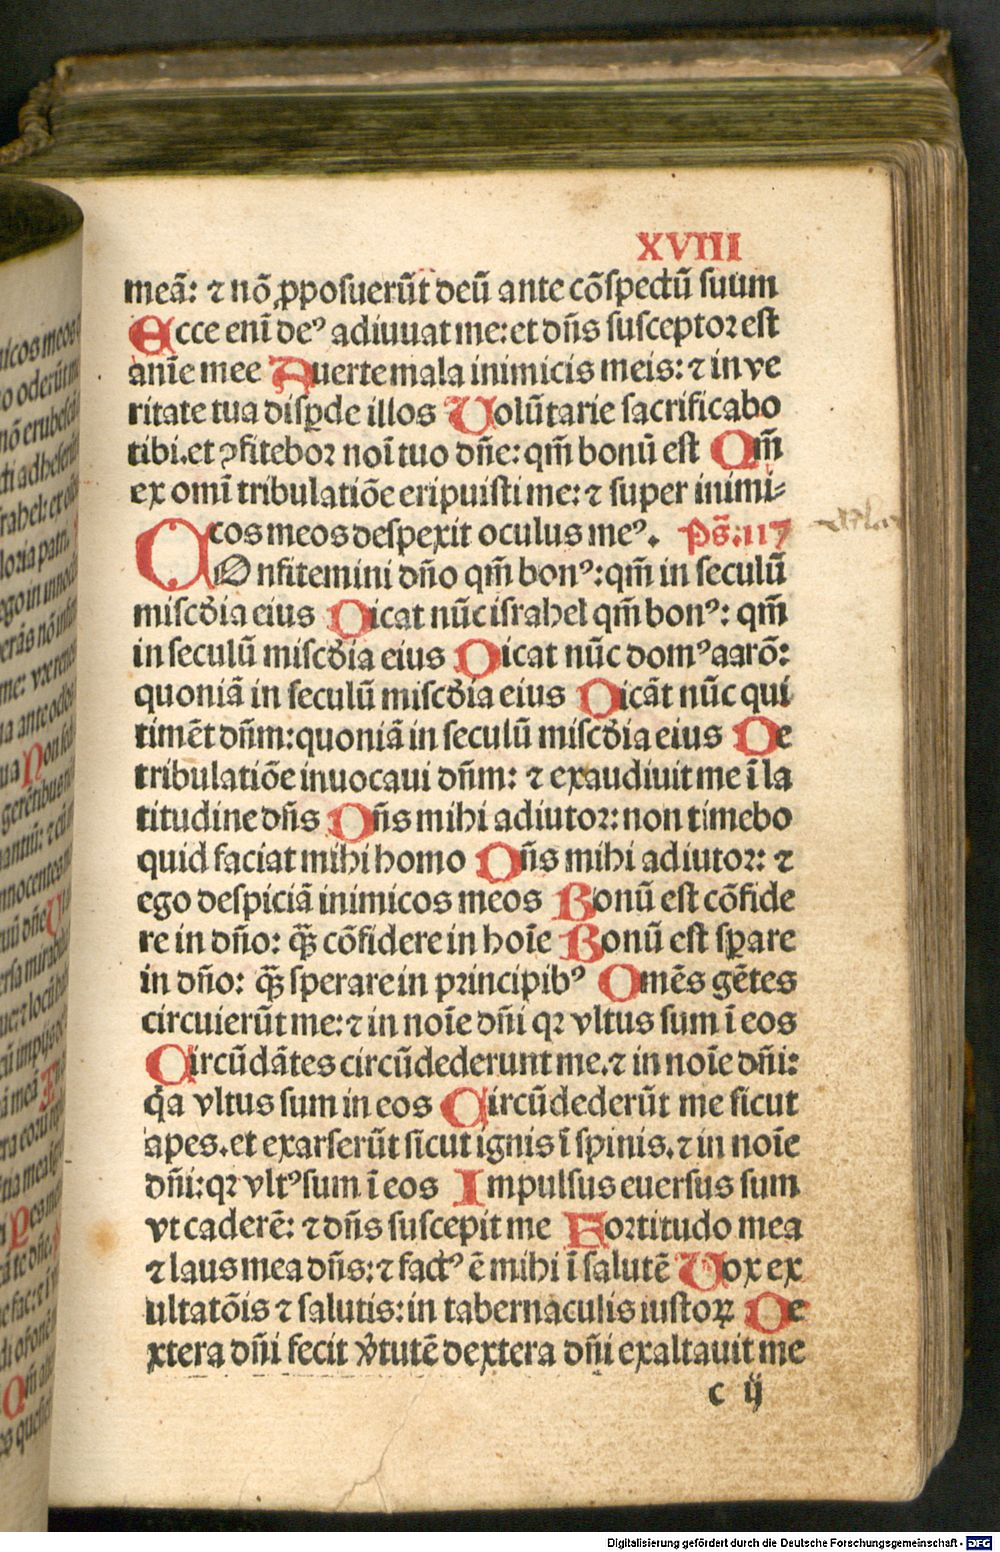 XVIII
meā: ⁊ nō ꝓposuerūt deū ante cōspectū suum
Ecce enī deꝰ adiuuat me: et dn̄s susceptor est
anīe mee Auerte mala inimicis meis: ⁊ in ve
ritate tua disꝑde illos Volūtarie sacrificabo
tibi. et ꝯfitebor noī tuo dn̄e: qm̄ bonū est Qm̄
ex omī tribulatiōe eripuisti me: ⁊ super inimi⸗
cos meos despexit oculus meꝰ. Ps̄. 117
COnfitemini dn̄o qm̄ bonꝰ: qm̄ in seculū
misc̄dia eius Dicat nūc israhel qm̄ bonꝰ: qm̄
in seculū misc̄dia eius Dicat nūc domꝰ aarō:
quoniā in seculū misc̄dia eius Dicāt nūc qui
timēt dn̄m: quoniā in seculū misc̄dia eius De
tribulatiōe inuocaui dn̄m: ⁊ exaudiuit me ī la
titudine dn̄s Dn̄s mihi adiutor: non timebo
quid faciat mihi homo Dn̄s mihi adiutor: ⁊
ego despiciā inimicos meos Bonū est cōfide
re in dn̄o: qꝫ̄ cōfidere in hoīe Bonū est sꝑare
in dn̄o: qꝫ̄ sperare in principibꝰ Omēs gētes
circuierūt me: ⁊ in noīe dn̄i qꝛ vltus sum ī eos
Circūdātes circūdederunt me. ⁊ in noīe dn̄i:
q̄a vltus sum in eos Circūdederūt me sicut
apes. et exarserūt sicut ignis ī spinis. ⁊ in noīe
dn̄i: qꝛ vltꝰ sum ī eos Impulsus euersus sum
vt caderē: ⁊ dn̄s suscepit me Fortitudo mea
⁊ laus mea dn̄s: ⁊ factꝰ ē mihi ī salutē Vox ex
ultatōis ⁊ salutis: in tabernaculis iustoꝝ De
xtera dn̄i fecit v̄tutē dextera dn̄i exaltauit me
c ij
Digitalisierung gefördert durch die Deutsche Forschungsgemeinschaft - DFG